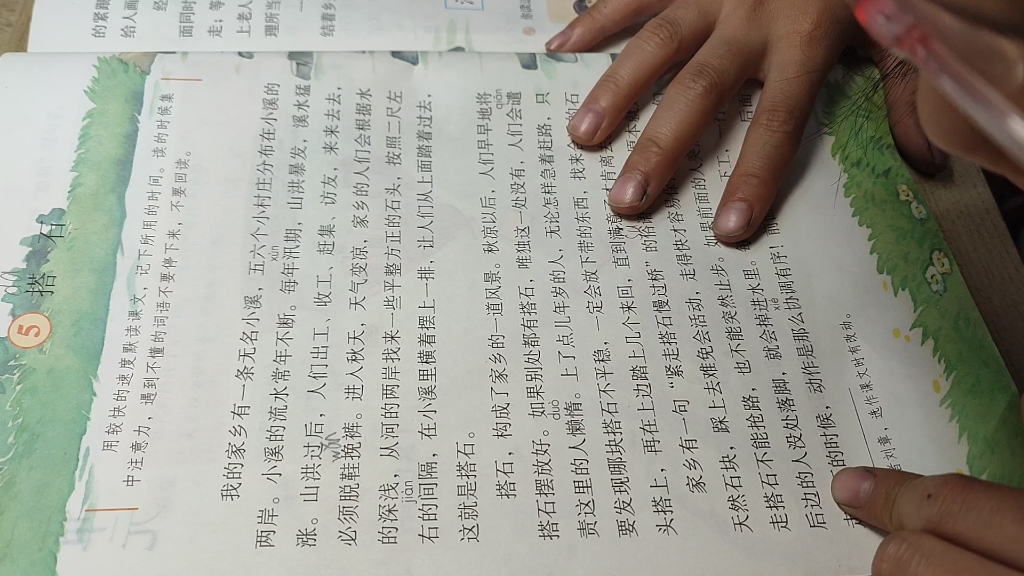 的紧跟
给人画
经
面同时
走；等
上老人
理所当
结着乡
5
搭石
用较快的速度默读课文，记下所用的时间。读的时候集
中注意力，遇到不懂的词语不要停下来，不要回读。
我的家乡有一条无名小溪，五六个小村庄分布在小溪的
两岸。小溪的流水常年不断。每年汛期，山洪暴发，溪水猛
xùn
涨。山洪过后，人们出工、收工、赶集、访友，来来去去，
必须脱鞋挽裤。进入秋天，天气变凉，家乡的人们会根据水
wǎn
的深浅，从河的两岸找来一些平整方正的石头，按照二尺左
jiàn
右的间隔，在小溪里横着摆上一排，让人们从上面踏着过去，
这就是搭石。
qiǎn
搭石，构成了家乡的一道风景。秋凉以后，人们早早地将
搭石摆放好。如果别处都有搭石，唯独这一处没有，人们会谴
duò
责这里的人懒惰。上了点儿年岁的人，无论怎样急着赶路，只
要发现哪块搭石不平稳，一定会放下带的东西，找来
石
头搭上，再在上边踏上几个来回，直到满意
肯离去
家乡有一句“紧走搭石慢过桥”的俗语
天然石块，踩上去难免会活动，走得快才容易
走搭石不能抢路，也不能突然止步。如果前面的人突
后边的人没处落脚，就会掉进水里。
下工，一行
xié
的时候，动作是那么协调有序！
后面
者刘章，选作课文时有改动。